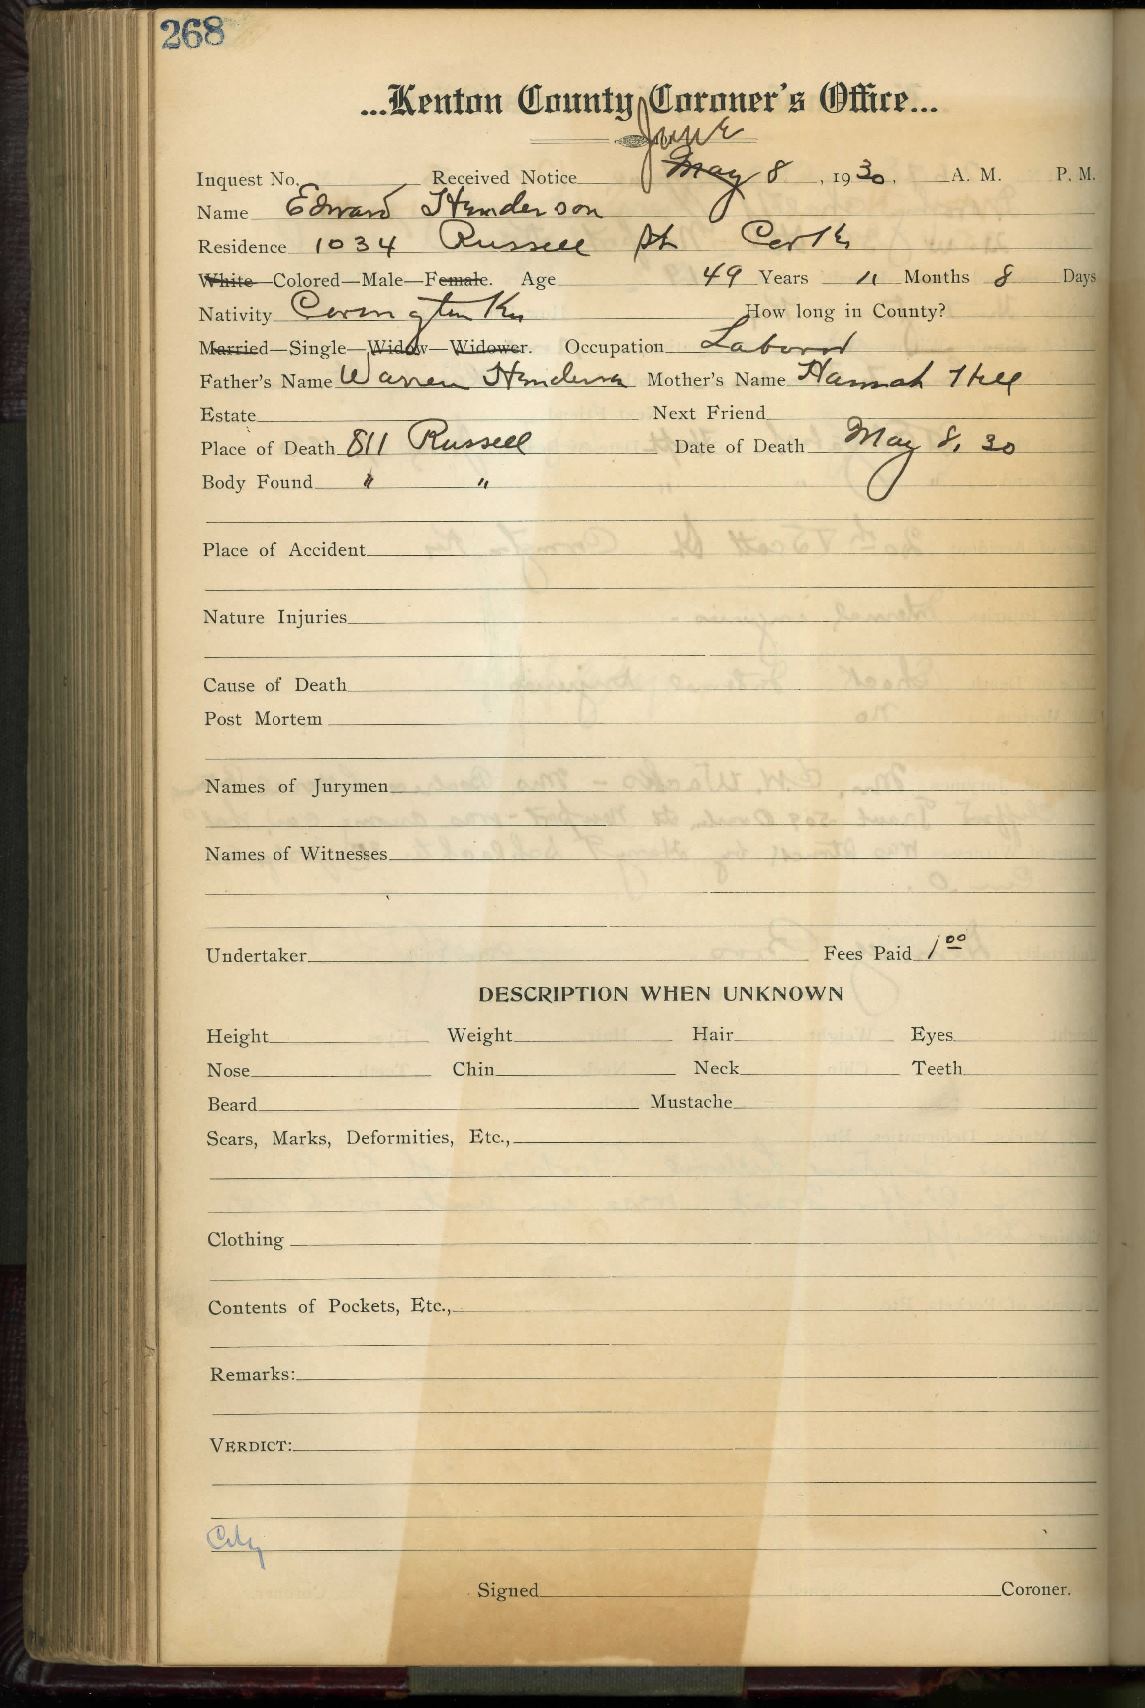 268
...Kenton County Coroner's Office...
June
Inquest No. Received Notice May 8, 1930, A. M. P. M.
Name Edward Henderson
Residence 1034 Russell St
White—Colored—Male—Female. Age 49 Years 11 Months 8 Days
Nativity Covington Ky How long in County?
Married—Single—Widow—Widower. Occupation Laborer
Father's Name Warren Henderson Mother's Name Hannah Hill
Estate Next Friend
Place of Death 811 Russell Date of Death May 8, 30
Body Found " "
Place of Accident
Nature Injuries
Cause of Death
Post Mortem
Names of Jurymen
Names of Witnesses
Undertaker Fees Paid 1 00
DESCRIPTION WHEN UNKNOWN
Height Weight Hair Eyes
Nose Chin Neck Teeth
Beard Mustache
Scars, Marks, Deformities, Etc.,
Clothing
Contents of Pockets, Etc.,
Remarks:
VERDICT:
City
Signed Coroner.